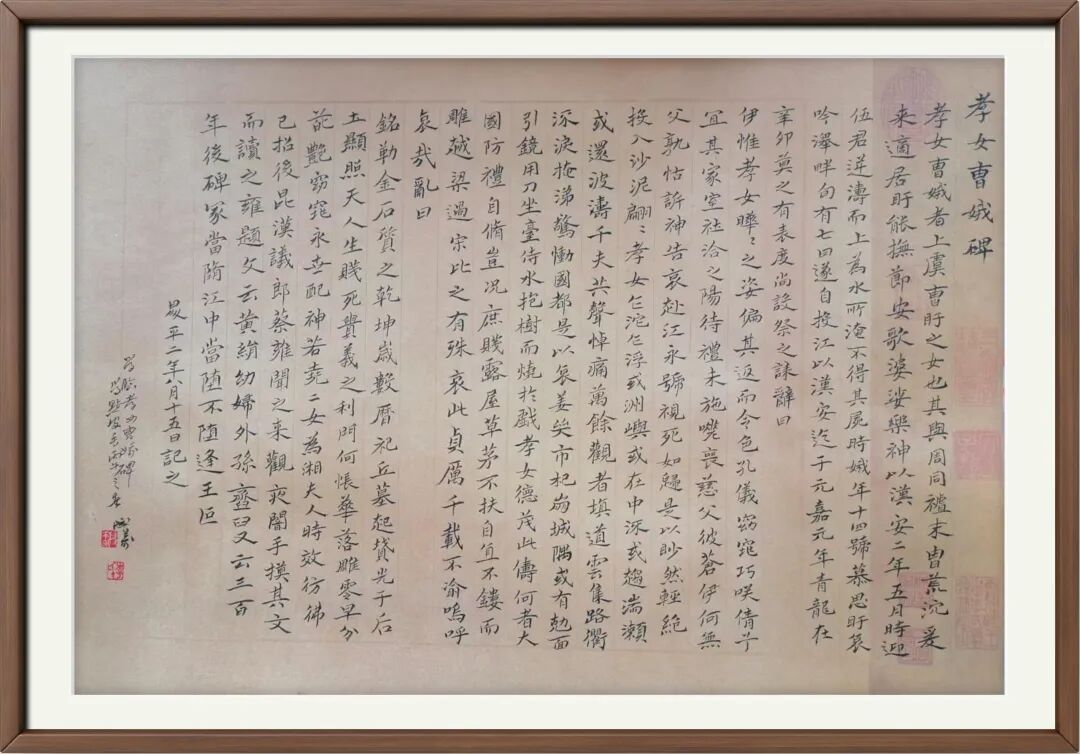 孝女曹娥碑
孝女曹娥者上虞曹盱之女也其與周同襠末胄荒沉爰
来適居盱能撫節安歌婆娑樂神以漢安二年五月時迎
伍君逆濤而上為水所淹不得其屍時娥年十四號慕思盱哀
吟澤畔旬有七日遂自投江以漢安迄于元嘉元年青龍在
辛卯莫之有表度尚設祭之誄辭曰
伊惟孝女曄〻之姿偏其返而令色孔儀窈窕巧咲倩兮
宜其家室社洽之陽待禮未施嗟喪慈父彼蒼伊何無
父孰怙訴神告哀赴江永號視死如歸是以眇然輕絶
投入沙泥翩〻孝女乍沱乍浮或洲嶼或在中流或趨湍瀨
或還波濤千夫共聲悼痛萬餘觀者填道雲集路衢
流淚掩涕驚慟國都是以哀姜哭市杞崩城隅或有剋面
引鏡用刀坐臺待水抱樹而燒於戲孝女德茂此儔何者大
國防禮自脩豈况庶賤露屋草茅不扶自直不鏤而
雕越梁過宋比之有殊哀此貞厲千載不渝嗚呼
哀哉亂曰
銘勒金石質之乾坤嵗數曆祀丘墓起墳光于后
土顯照天人生賤死貴義之利門何悵華落雕零早分
葩艷窈窕永世配神若堯二女為湘夫人時效彷彿
已招後昆漢議郎蔡雍聞之来觀夜闇手摸其文
而讀之雍題文云黄絹幼婦外孫齏臼又云三百
年後碑冢當隋江中當隨不隨逢王叵
昇平二年八月十五日記之
曹娥碑